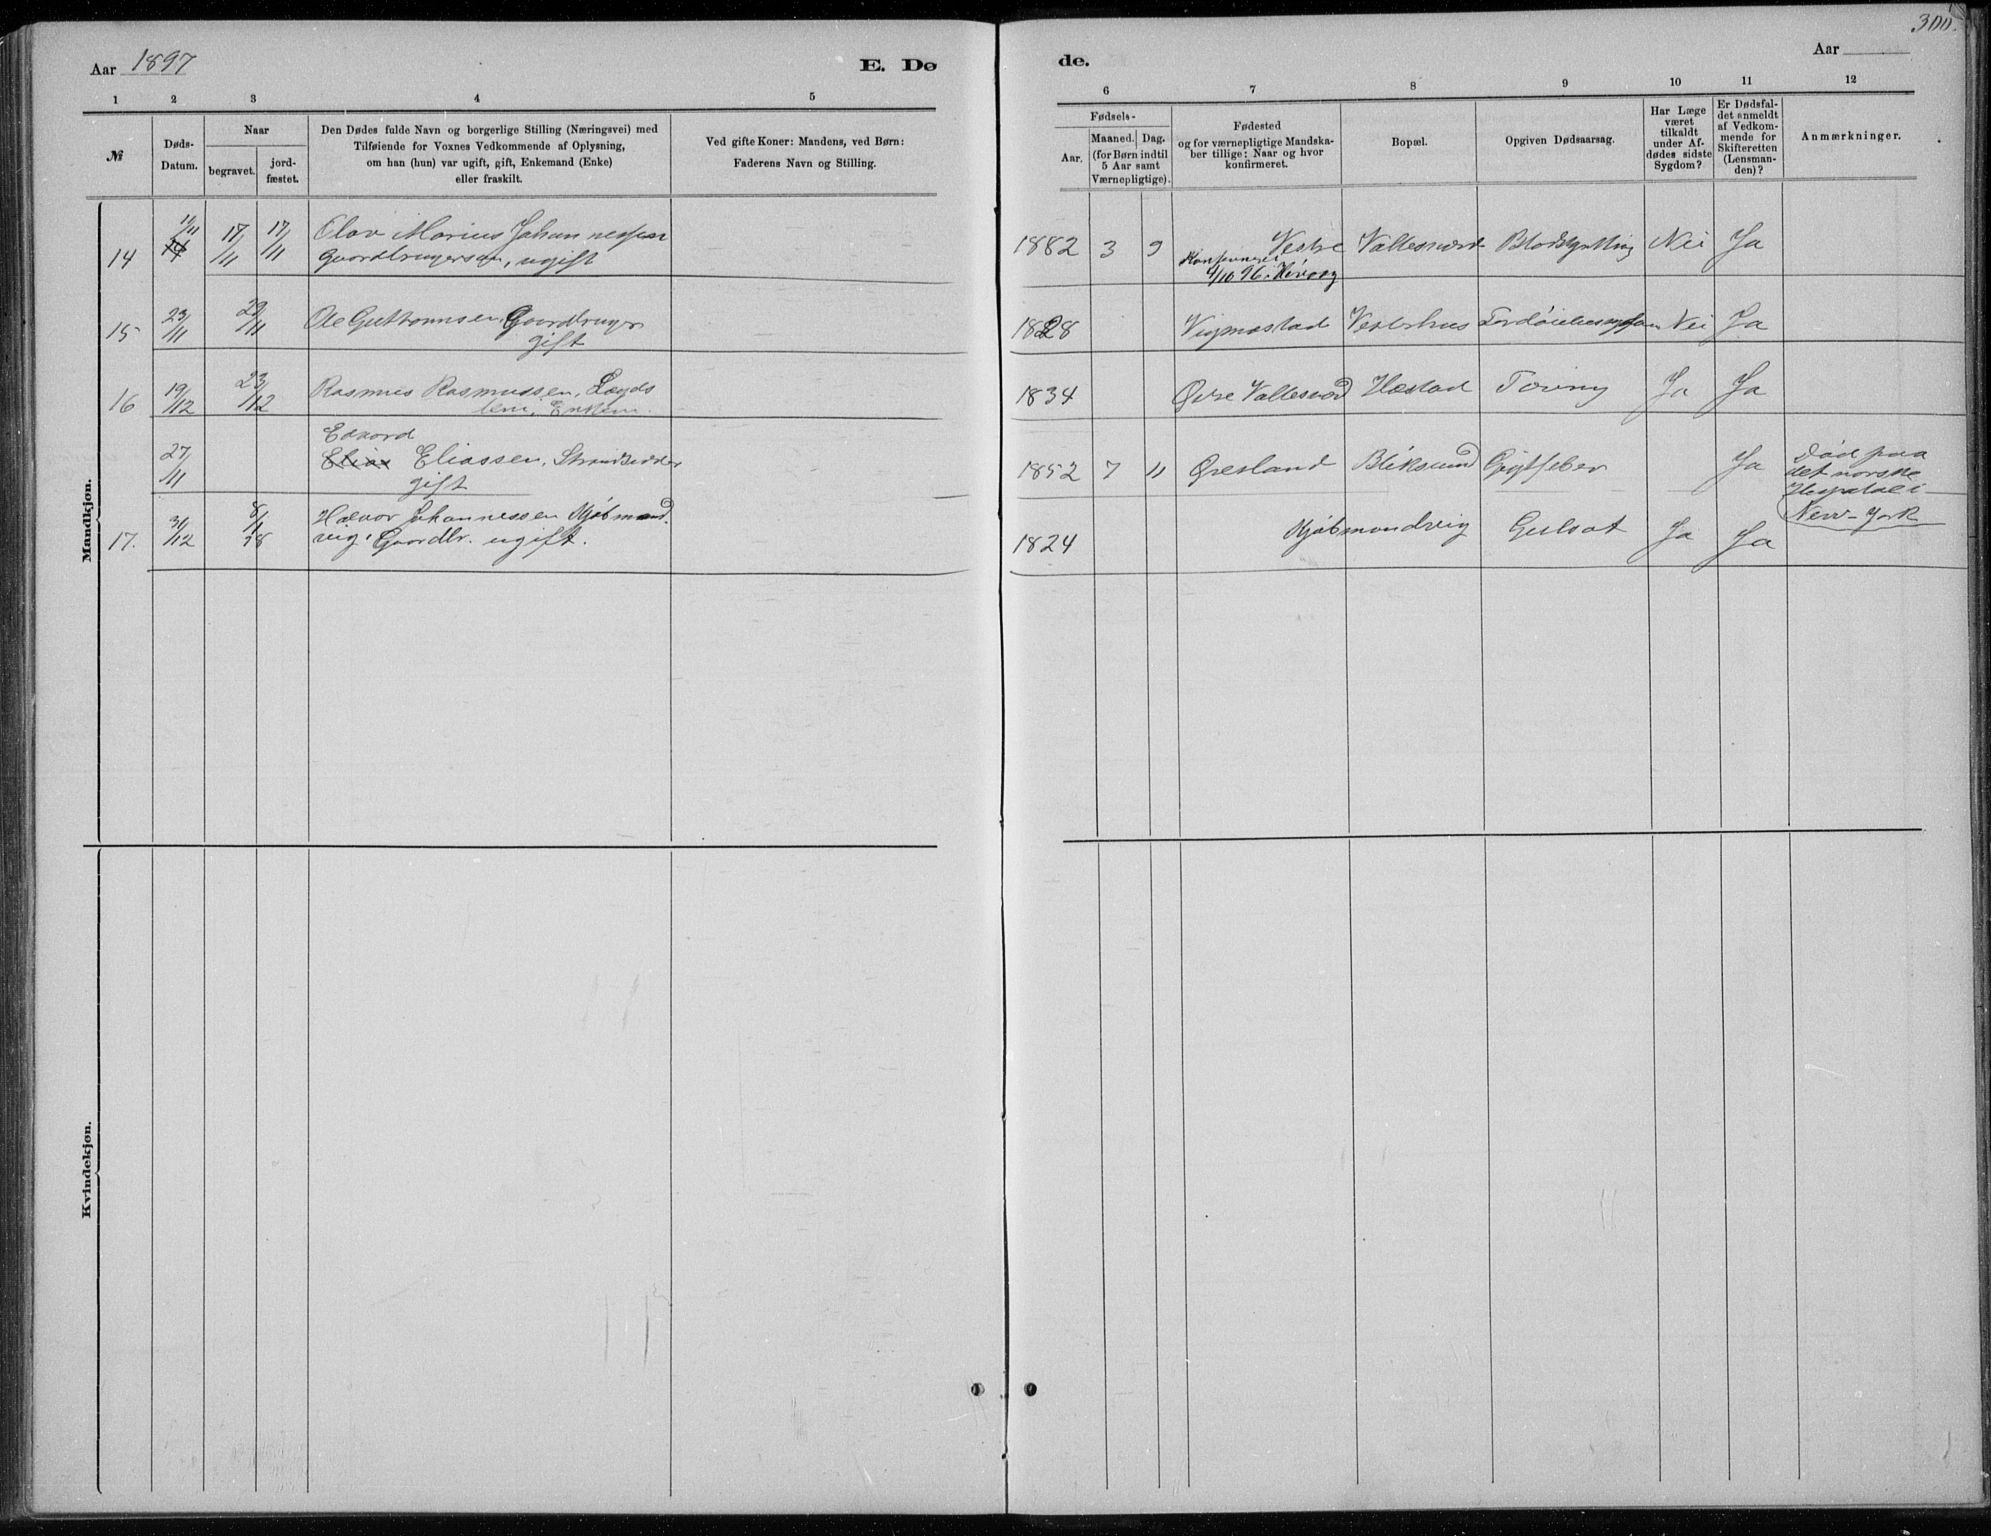 300.
Aar 1897
E. Dø
de.
Aar
1 2 3 4 5
6 7 8 9 10 11 12
№
Døds-
Datum.
Naar
begravet.
jord-
fæstet.
Den Dødes fulde Navn og borgerlige Stilling (Næringsvei) med
Tilføiende for Voxnes Vedkommende af Oplysning,
om han (hun) var ugift, gift, Enkemand (Enke)
eller fraskilt.
Ved gifte Koner: Mandens, ved Børn:
Faderens Navn og Stilling.
Fødsels-
Aar.
Maaned. Dag.
(for Børn indtil
5 Aar samt
Værnepligtige).
Fødested
og for værnepligtige Mandska-
ber tillige: Naar og hvor
konfirmeret.
Bopæl.
Opgiven Dødsaarsag.
Har Læge
været
tilkaldt
under Af-
dødes sidste
Sygdom?
Er Dødsfal-
det anmeldt
af Vedkom-
mende for
Skifteretten
(Lensman-
den)?
Anmærkninger.
Mandkjøn.
14 11/11 17/11 17/11 Olav Marius Johannessen
Gaardbrugersøn, ugift
1882 3 9 Vestre Vallesværd Blodspytting Nei Ja
4/10 96 i Høvaag
15 23/11 29/11 Ole Guttormsen, Gaardbruger
gift
1828 Vigmostad Vesterhus Nei Ja
16 19/12 23/12 Rasmus Rasmussen, Lægds
lem, Enkem.
1834 Øvre Vallesværd Hæstad Tæring Ja Ja
27/11 Edvard
Elias Eliassen, Strandsidder
gift
1852 7 11 Øresland Bliksund Gigtfeber Ja Død paa
det norske
Hospital i
New-York
17. 31/12 8/1 98 Halvor Johannessen Kjøbmand
vig, Gaardbr. ugift.
1824 Kjøbmandvig Gulsot Ja Ja
Kvindekjøn.